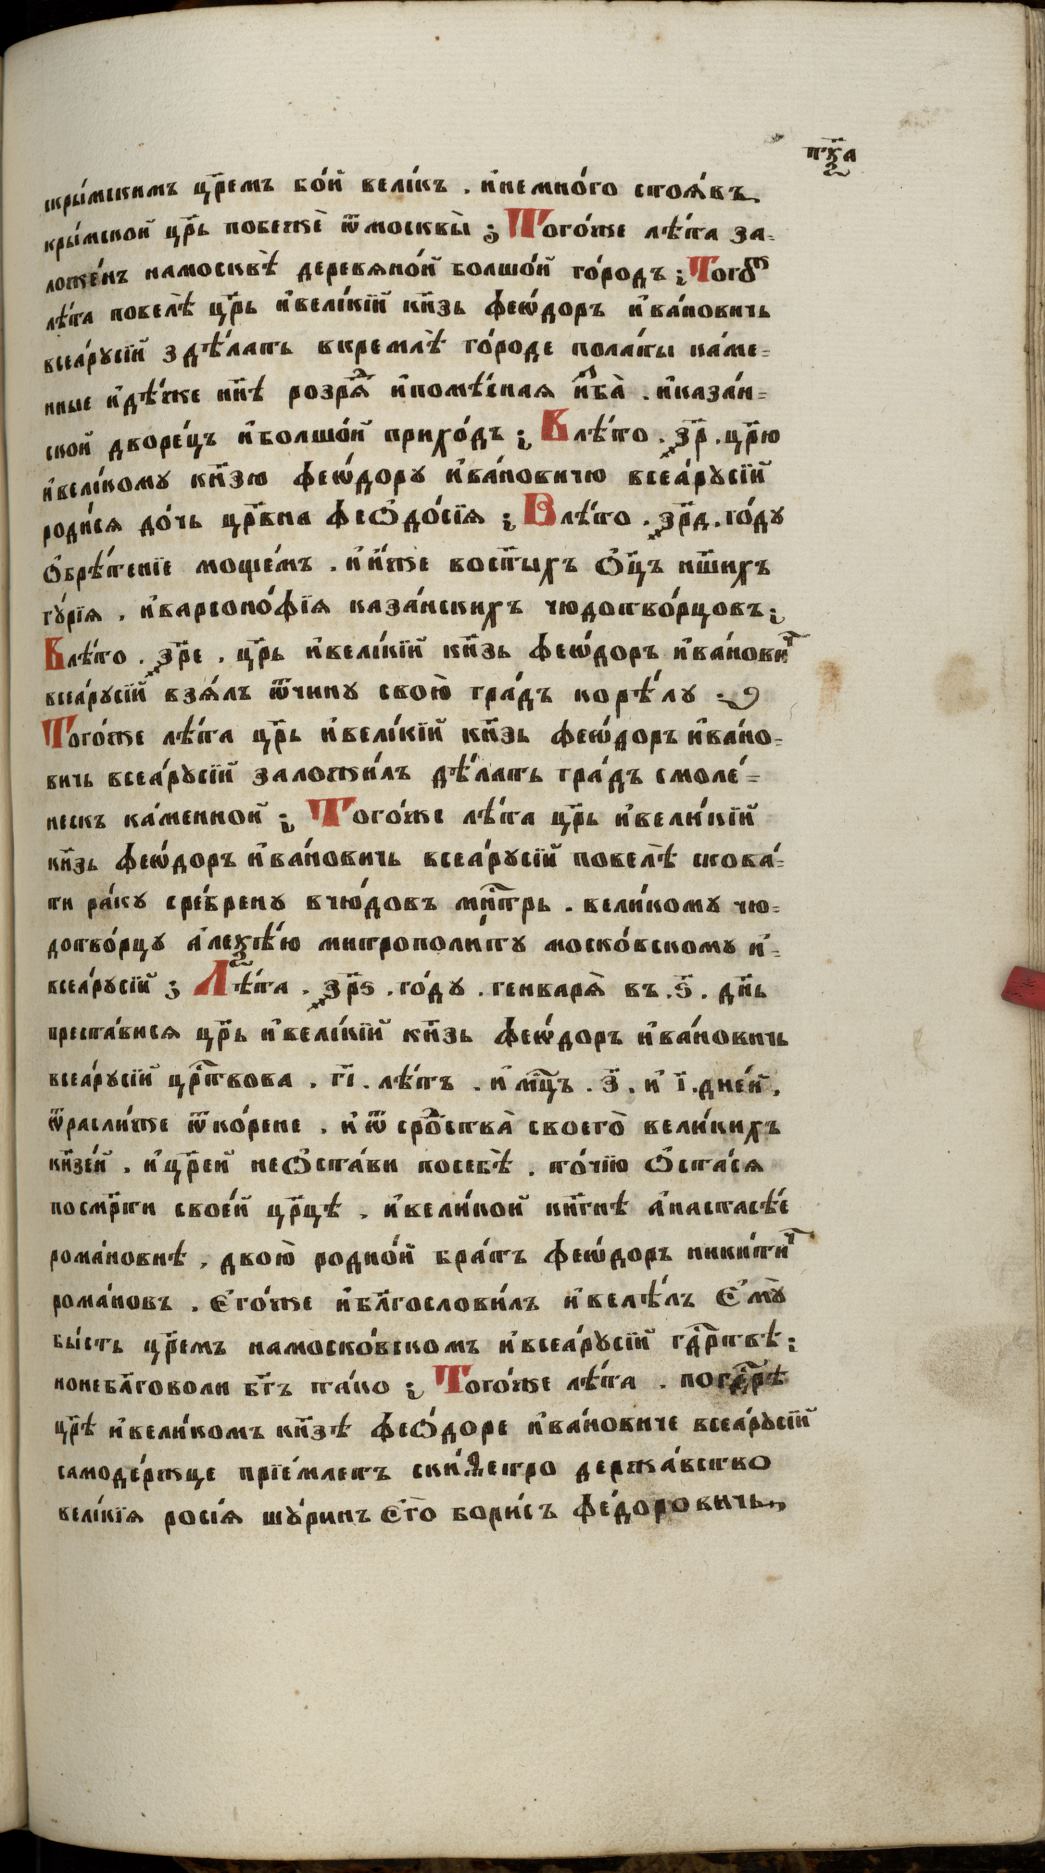 пк҃а
скры́мскимъ цр҃емъ бо́й вели́къ . и҆немно́го стоя́въ
кры́мской цр҃ь побежѐ ѿмосквы̀ ; Того́же лѣ́та за-
ложе́нъ намосквѣ̀ деревяно́й болшо́й го́родъ ; Тогож
лѣ́та повелѣ̀ цр҃ь и҆вели́кїй кн҃зь феѡ́доръ и҆ва́новичь
всеа́русїй здѣ́лать вкремлѣ̀ го́роде пола́ты ка́ме=
нные и҆дѣ́же нн҃ѣ розрѧ́д и҆помѣ́сная и҆зба̀ . и҆каза́н=
ской дворе́цъ и҆болшо́й прихо́дъ ; Влѣ́то . ҂зр҃ . цр҃ю
и҆вели́кому кн҃зю феѡ́дору и҆ва́новичю всеа́русїй
роди́ся до́чь цр҃вна феѻдо́сїя ; Влѣ́то . ҂зр҃д . го́ду
ѻ҆брѣ́тенїе моще́мъ . и҆и́же вост҃ыхъ ѻ҆ц҃ъ нш҃ихъ
гу́рїя . и҆варсоно́фїя каза́нскихъ чюдотво́рцовъ ;
Влѣ́то . ҂зр҃е . цр҃ь и҆вели́кїй кн҃зь феѡ́доръ и҆ва́нович
всеа́русїй взя́лъ ѿчину свою̀ гра́дъ корѣ́лу
Того́же лѣ́та цр҃ь и҆вели́кїй кн҃зь феѡ́доръ и҆ва́но-
вичь всеа́русїй заложи́лъ дѣ́лать гра́дъ смоле́=
нескъ ка́менной ; Того́же лѣ́та цр҃ь и҆вели́кїй
кн҃зь феѡ́доръ и҆ва́новичь всеа́русїй повелѣ̀ скова́=
ти ра́ку сре́брену вчю́довъ мн҃трь . вели́кому чю=
дотво́рцу а҆леѯѣ́ю митрополи́ту моско́вскому и҆=
всеа́русїй ; Лѣ́та . ҂зр҃ѕ . го́ду . генваря̀ въ . ѕ҃ . дн҃ь
преста́вися цр҃ь и҆вели́кїй кн҃зь феѡ́доръ и҆ва́новичь
всеа́русїй цр҃твова . г҃і . лѣ́тъ . и҆ мц҃ъ . з҃ . и҆ і҃ . дне́й ,
ѿрасли́же ѿко́рене . и҆ ѿ сро́дства̀ своего̀ вели́кихъ
кн҃зе́й . и҆цр҃ей неѻста́ви посебѣ̀ . то́чїю ѻ҆ста́ся
посмр҃ти свое́й цр҃цѣ . и҆вели́кой кн҃гнѣ а҆настасѣ́е
рома́новнѣ , двою̀ родно́й бра́тъ феѡ́доръ ники́тич
рома́новъ . є҆го́же и҆бл҃гослови́лъ и҆велѣ́лъ є҆мꙋ̀
бы́сть цр҃емъ намоско́вскомъ и҆всеа́русїй гдⷭ҇рⷭ҇твѣ ;
нонебл҃говоли бг҃ъ та́ко ; Того́же лѣ́та . погдⷭ҇рѣ
цр҃ѣ и҆вели́комъ кн҃зѣ феѻ́доре и҆ва́новиче всеа́русїй
самоде́ржце прїе́млетъ ски́ѳетро держа́вство
вели́кїя росі́я шу́ринъ є҆го̀ бори́съ фе́доровичь